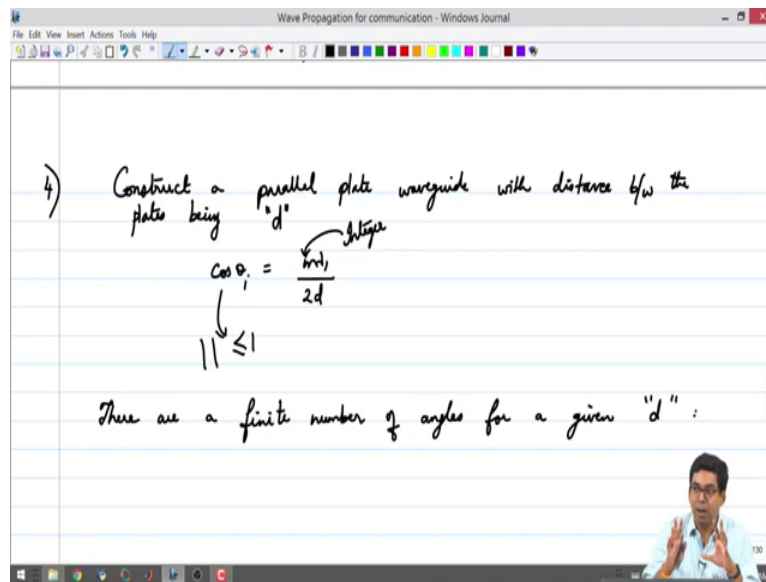 Wave Propagation for communication - Windows Journal
File Edit View Insert Actions Tools Help
B I
4) Construct a parallel plate waveguide with distance b/w the
plates being "d"
Integer
cos θi = mλ1
2d
| | ≤1
There are a finite number of angles for a given "d" :